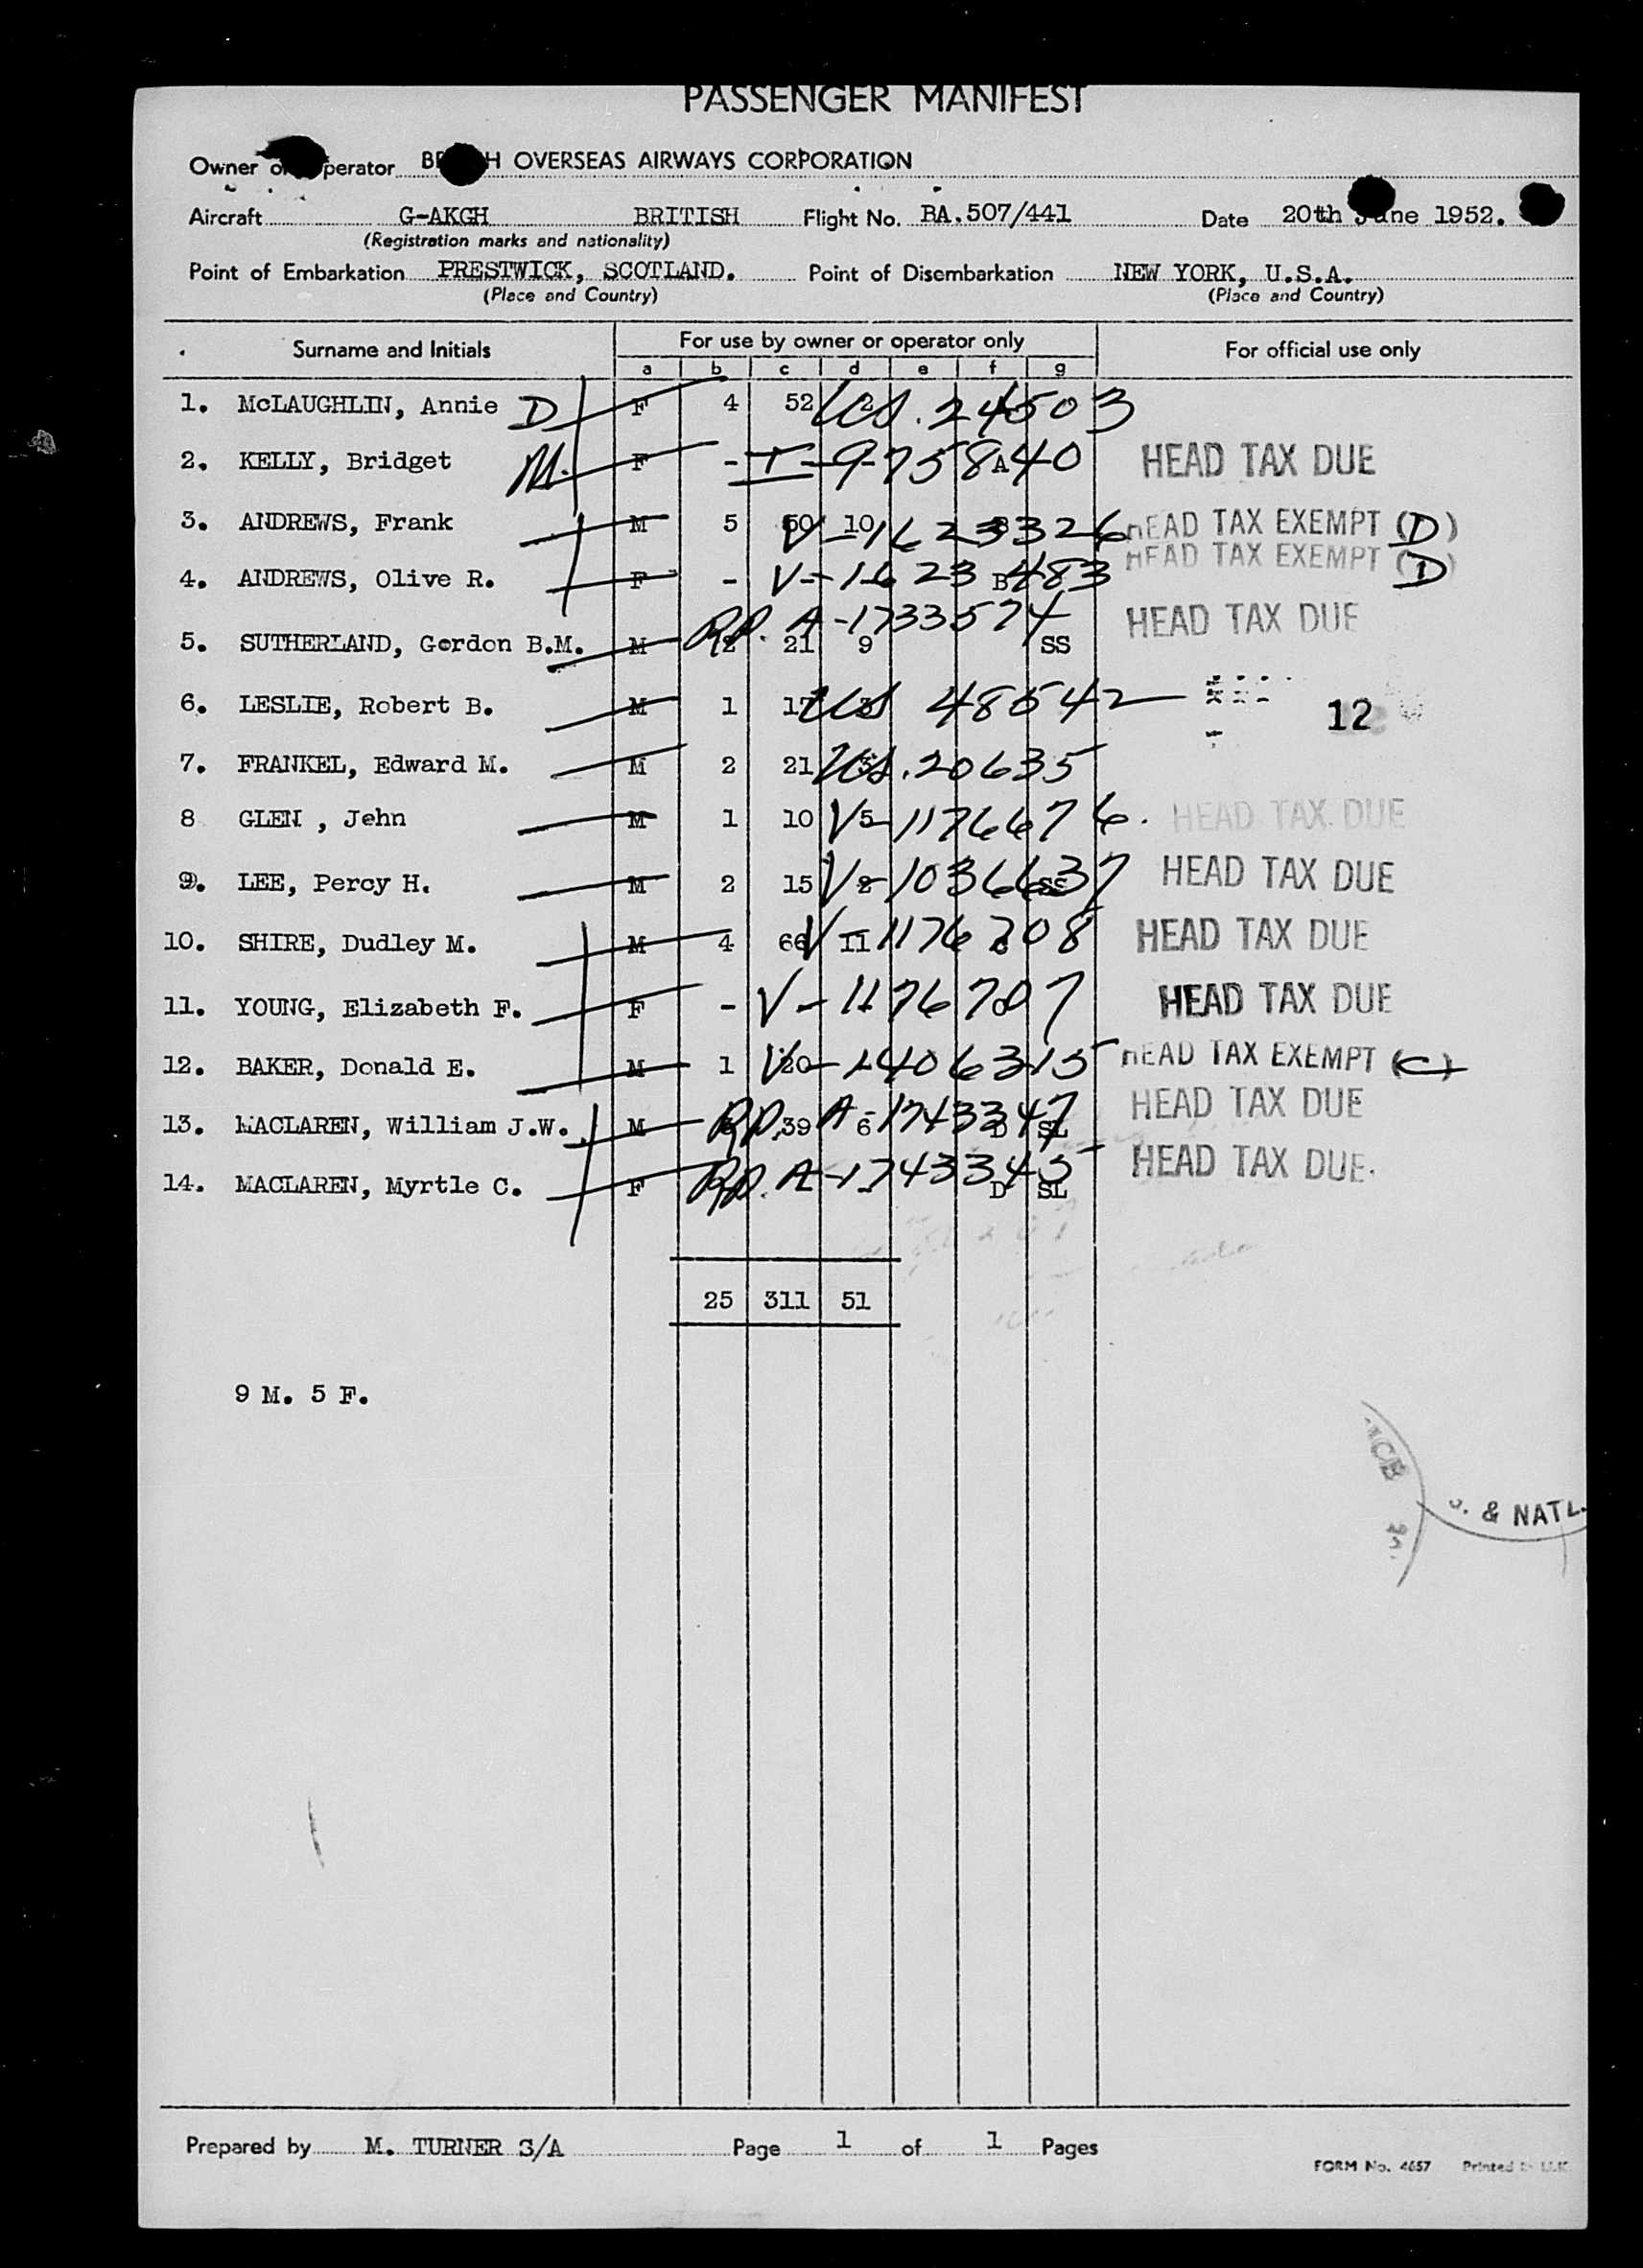 PASSENGER MANIFEST
Owner or perator BR H OVERSEAS AIRWAYS CORPORATION
Aircraft G-AKGH BRITISH Flight No. BA.507/441 Date 20th June 1952.
(Registration marks and nationality)
Point of Embarkation PRESTWICK, SCOTLAND. Point of Disembarkation NEW YORK, U.S.A.
(Place and Country) (Place and Country)
Surname and Initials For use by owner or operator only For official use only
a b c d e f g
1. McLAUGHLIN, Annie D F 4 52 2 US. 24503
2. KELLY, Bridget M. F - I-9758840 A HEAD TAX DUE
3. ANDREWS, Frank M 5 60 10 V-1623326 B HEAD TAX EXEMPT (D)
4. ANDREWS, Olive R. F - V-1623483 B HEAD TAX EXEMPT (D)
5. SUTHERLAND, Gordon B.M. M 2 21 9 RP. A-1733574 SS HEAD TAX DUE
6. LESLIE, Robert B. M 1 17 3 US 48542 12
7. FRANKEL, Edward M. M 2 21 3 US. 20635
8 GLEN , Jehn M 1 10 5 V-1176676. HEAD TAX DUE
9. LEE, Percy H. M 2 15 2 V-1036637 SS HEAD TAX DUE
10. SHIRE, Dudley M. M 4 66 11 V-1176708 HEAD TAX DUE
11. YOUNG, Elizabeth F. F - V-1176707 HEAD TAX DUE
12. BAKER, Donald E. M 1 20 V-1406315 HEAD TAX EXEMPT (C)
13. MACLAREN, William J.W. M 39 6 RP. A-1743347 D SL HEAD TAX DUE
14. MACLAREN, Myrtle C. F RP. A-1743345 D SL HEAD TAX DUE.
25 311 51
9 M. 5 F.
& NATL.
Prepared by M. TURNER S/A Page 1 of 1 Pages
FORM No. 4657 Printed in U.K.